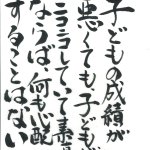 子どもの成績が
悪くても、子どもが
ニコニコしていて素直
ならば、何も心配
することはない